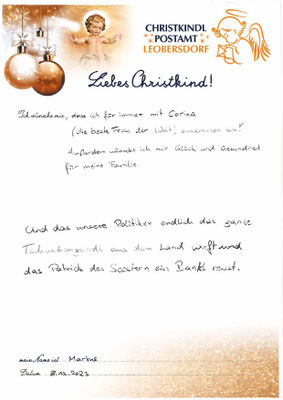 CHRISTKINDL
POSTAMT
LEOBERSDORF
Liebes Christkind!
Ich wünsche mir, dass ich für immer mit Corina
(die beste Frau der Welt) zusammen bin!
Außerdem wünsche ich mir Glück und Gesundheit
für meine Familie.
Und das unsere Politiker endlich das ganze
aus dem Land wirft und
das Patrick des ein Bankl reisst.
mein Name ist Markus
Datum 8.12.2023